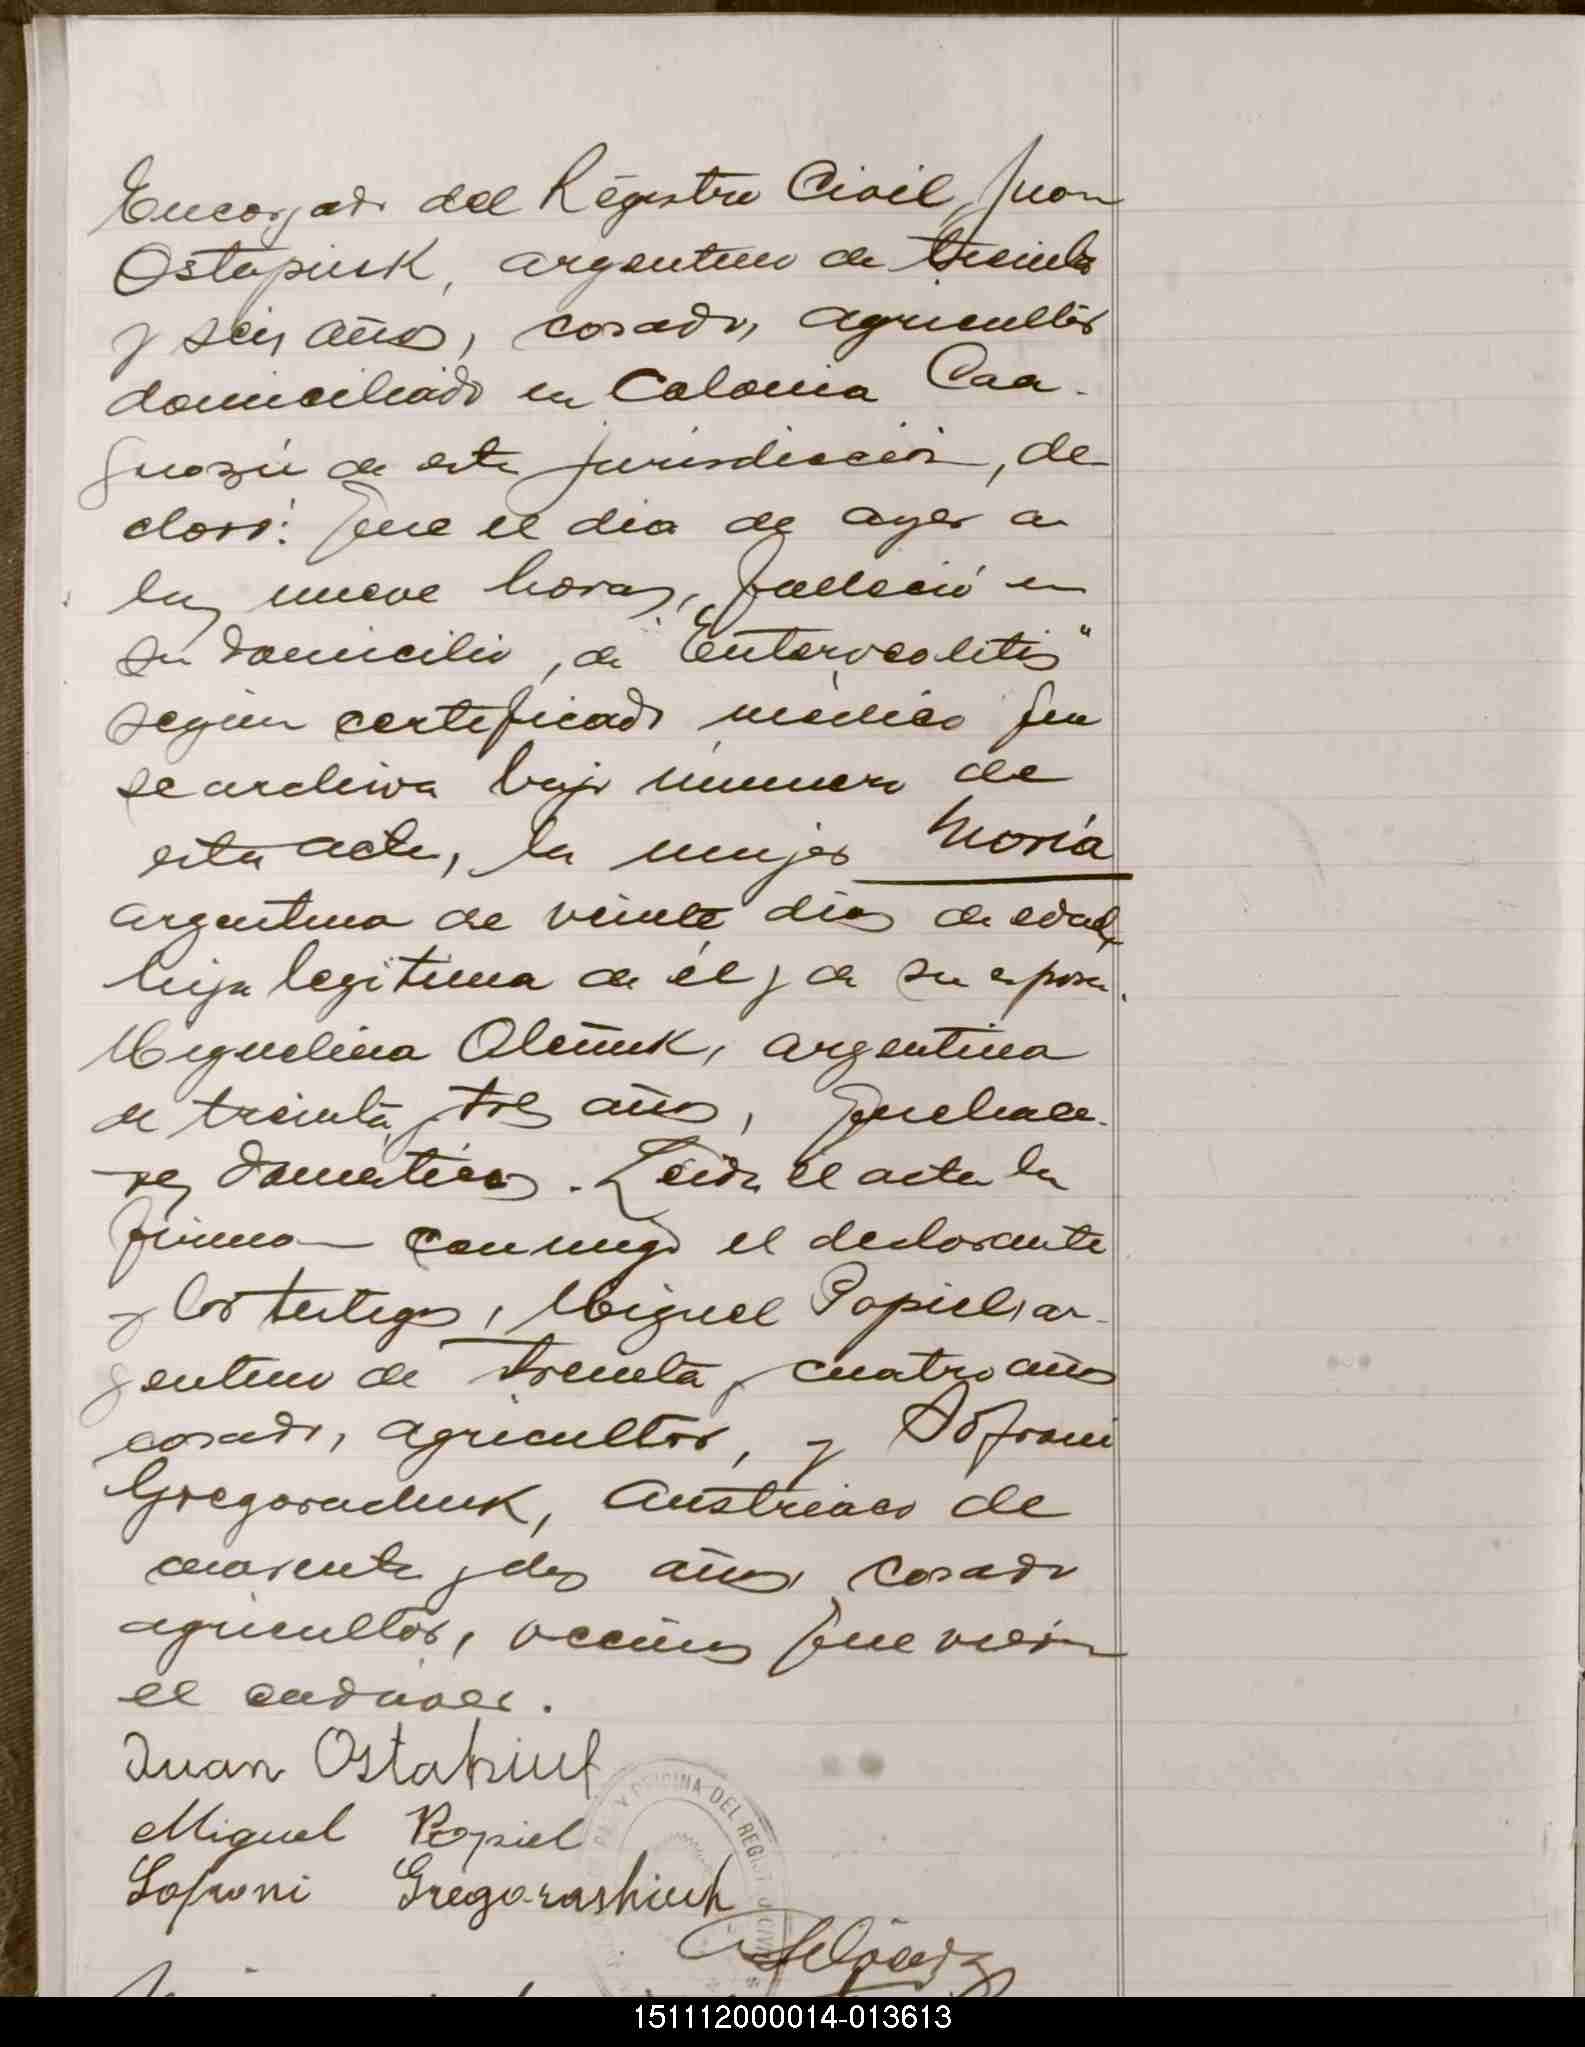 Encargado del Registro Civil, Juan
Ostapiuk, argentino de treinta
y seis años, casado, agricultor
domiciliado en Colonia Caa-
guazú de esta jurisdicción, de-
claró: Que el dia de ayer a
las nueve horas, falleció en
su domicilio, de "Enterocolitis"
según certificado médico que
se archiva bajo número de
esta acta, la mujer María
argentina de veinte dias de edad,
hija legitima de él y de su esposa
Miguelina Oleñuk, argentina
de treinta y tres años, quehace-
res domésticos. Leida el acta la
firman conmigo el declarante
y los testigos, Miguel Popiel, ar-
gentino de treinta y cuatro años
casado, agricultor, y Sofroni
Gregoraschuk, austriaco de
cuarenta y dos años, casado
agricultor, vecinos que vieron
el cadáver.
Juan Ostapiuk
Miguel Popiel
Sofroni Gregorashiuk
PAZ Y OFICINA DEL REGISTRO CIVIL
151112000014-013613